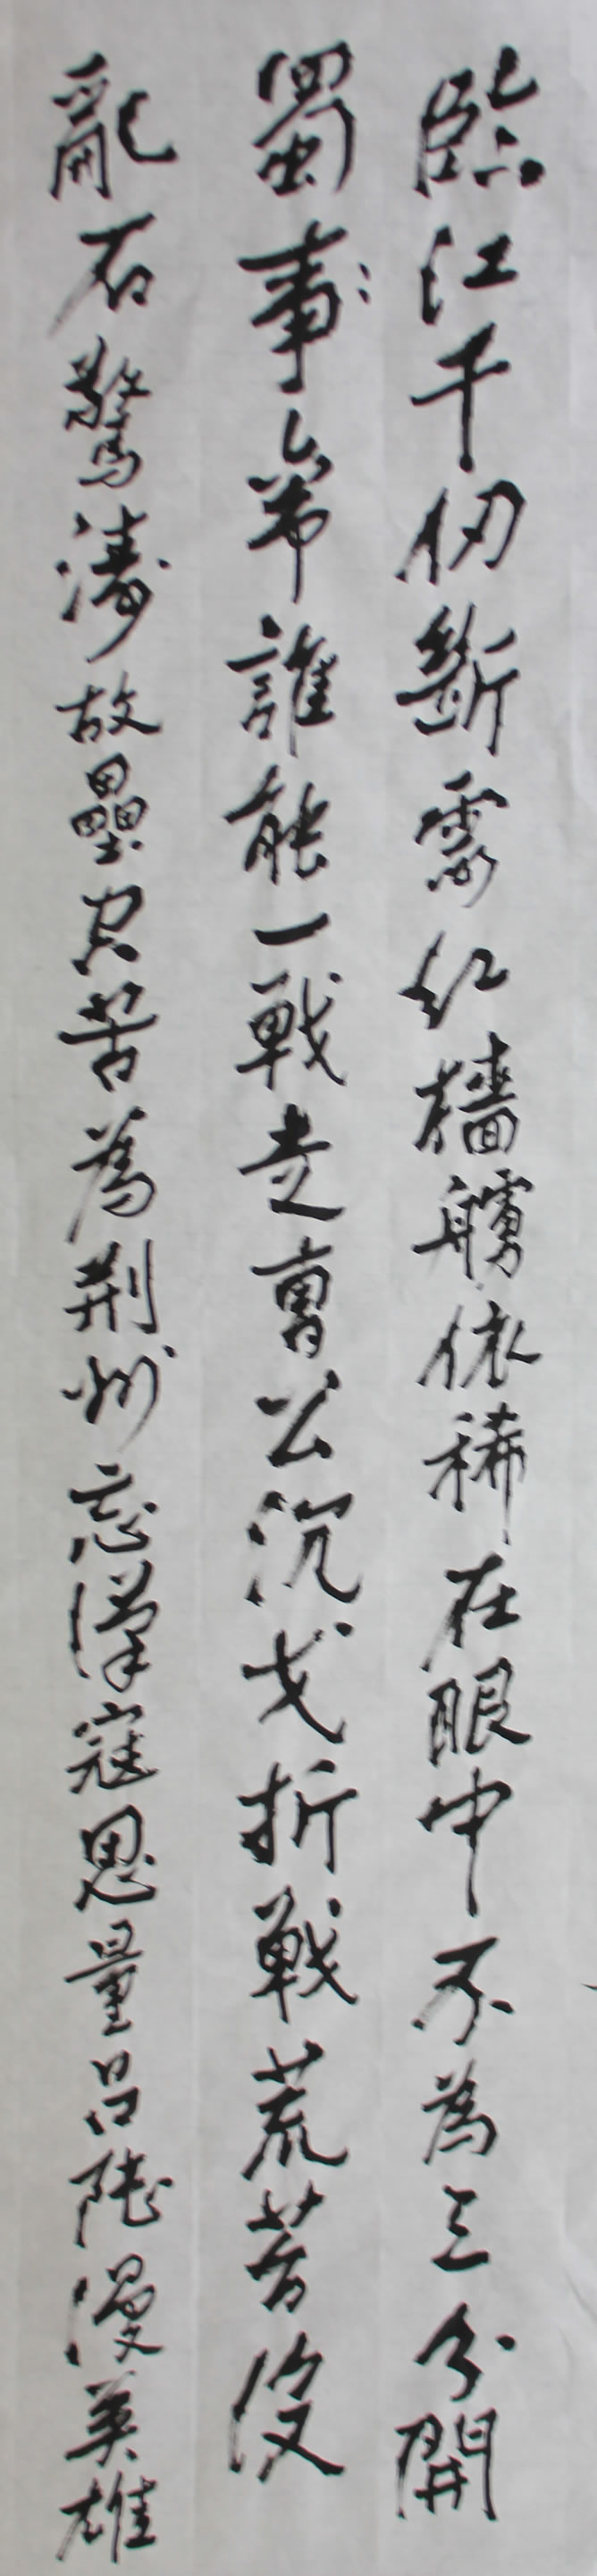 臨江千仞斷霞紅檣艣依稀在眼中不為三分開
蜀事常誰能一戰走曹公沉戈折戟荒苔没
亂石驚濤故壘空苦為荆州忘漢寇思量吕陸漫英雄